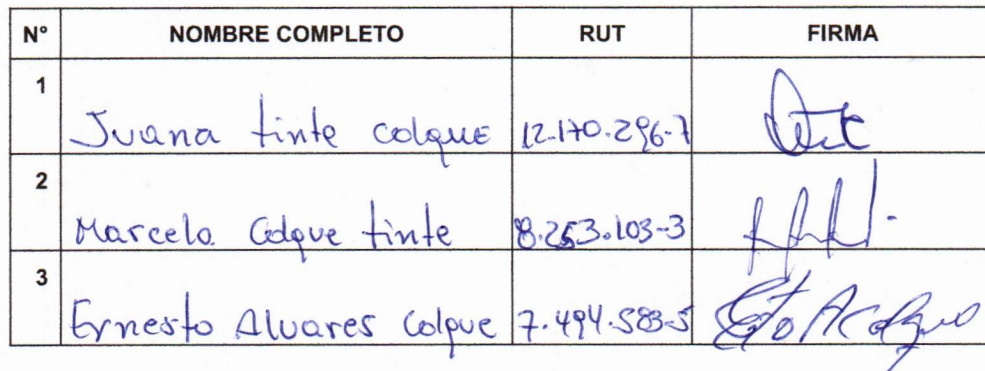 N° NOMBRE COMPLETO RUT FIRMA
1 Juana tinte colque 12.170.296-7
2 Marcelo Colque tinte 8.253.103-3
3 Ernesto Alvares Colque 7.494.583-5